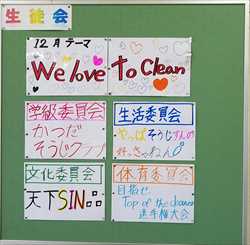 生徒会
12月テーマ
We love to Clean
学級委員会
かつだ
そうじクラブ
生活委員会
やっぱそうじすんの
文化委員会
天下SIN品
体育委員会
目指せ
Top of the cleaner
選手権大会